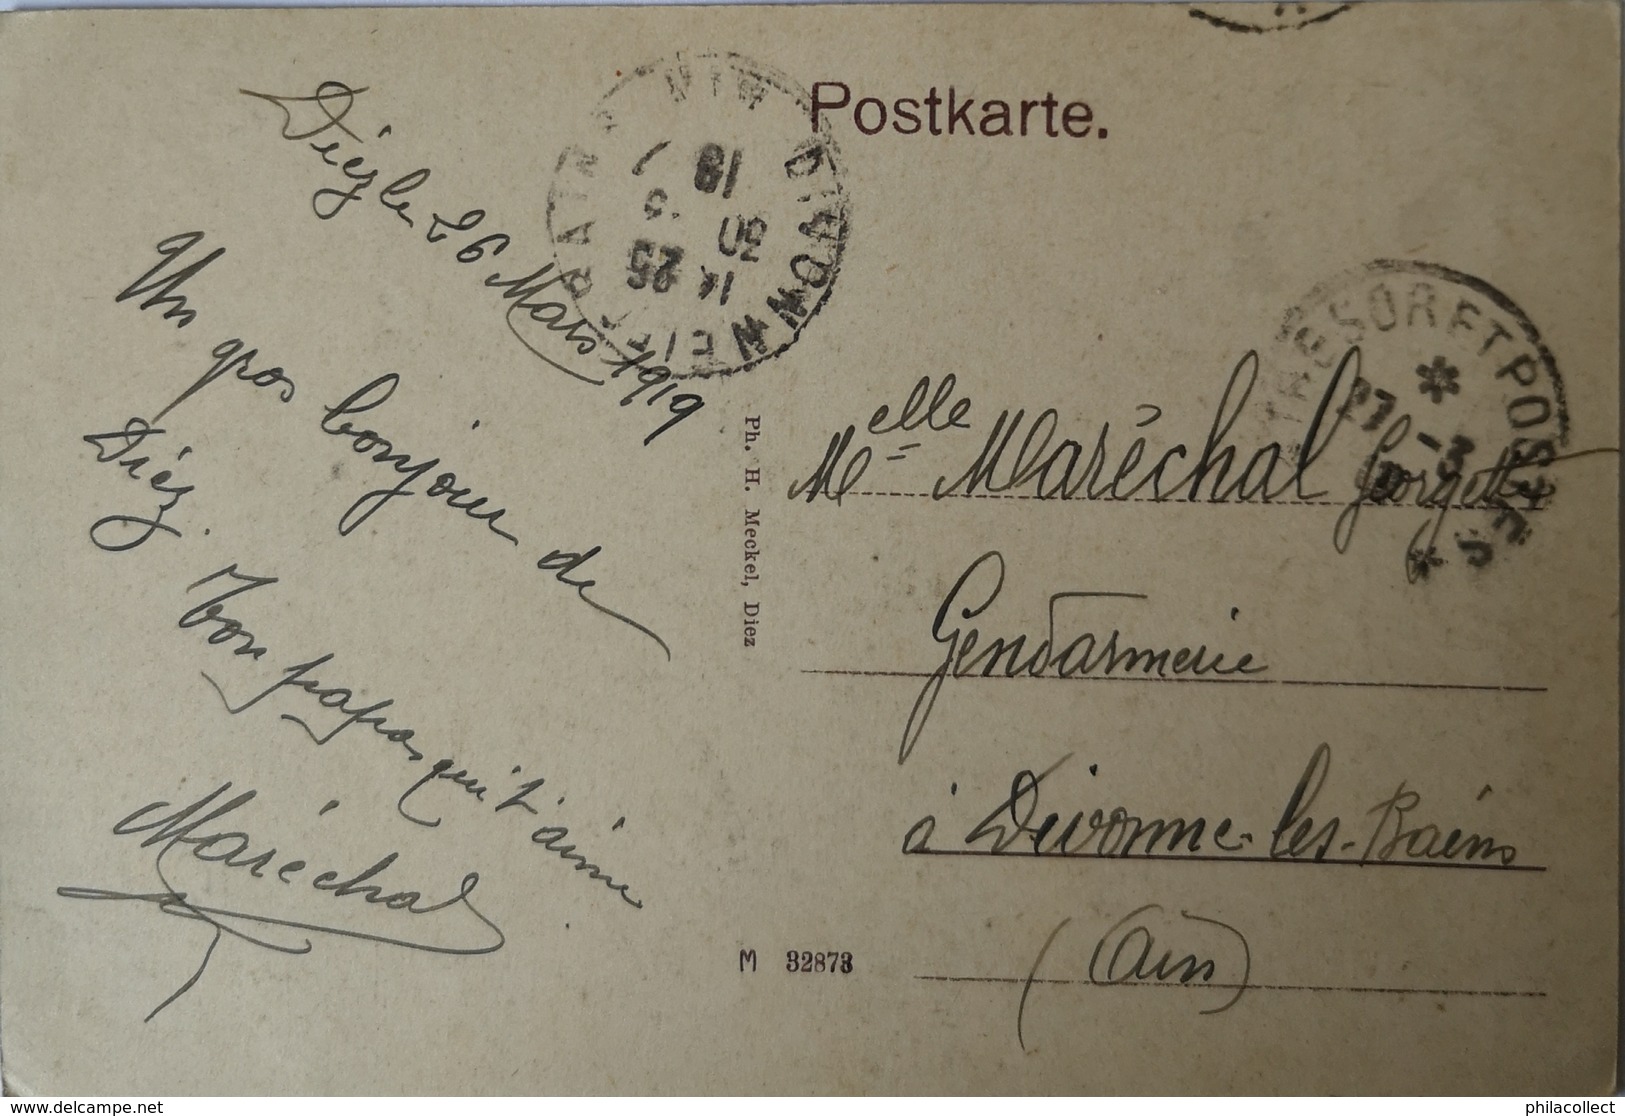 Postkarte.
Diez le 26 Mars 1919
Un gros bonjour de
Diez.
Ton papa qui t'aime
Maréchal
Ph. H. Meckel, Diez
M 32873
Melle Maréchal Georgette
Gendarmerie
à Divonne-les-Bains
(Ain)
TRESOR ET POSTES
27 -3
14 30
25 3
19
philacollect
© delcampe.net